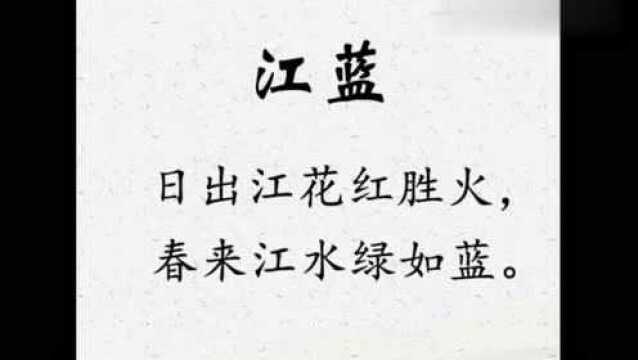 江蓝
日出江花红胜火，
春来江水绿如蓝。